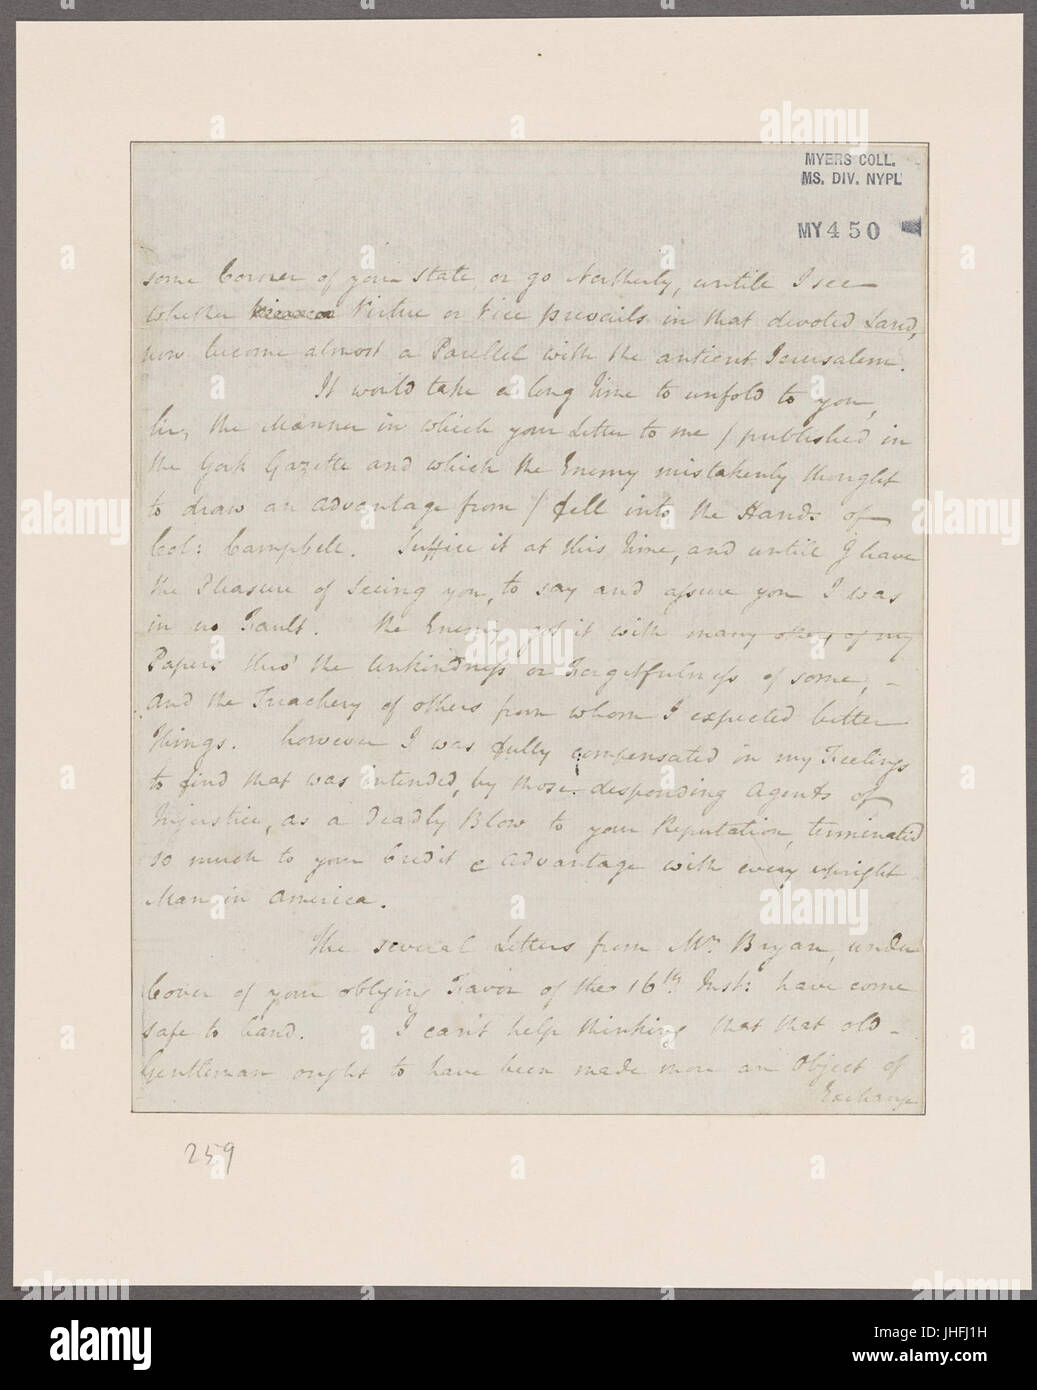 MYERS COLL.
MS. DIV. NYPL
MY450
some Corner of your State, or go Northerly, untile I see
whether Virtue or Vice prevails in that devoted Land,
now become almost a Parellel with the antient Jerusalem.
It would take a long Time to unfold to you,
Sir, the Manner in which your Letter to me / published in
the York Gazette and which the Enemy mistakenly thought
to draw an advantage from / fell into the Hands of
Col: Campbell. Suffice it at this Time, and untile I have
the Pleasure of seeing you, to say and assure you I was
in no Fault. The Enemy got it with many other of my
Papers thro' the Unkindness or Forgetfulness of some, -
and the Treachery of others from whom I expected better
Things. however I was fully compensated in my Feelings
to find that was intended, by those desponding Agents of
Injustice, as a Deadly Blow to your Reputation, terminated
so much to your Credit & advantage with every upright
Man in America.
The several Letters from Mr. Bryan, under
Cover of your obliging Favor of the 16th Inst: have come
safe to hand. I can't help thinking that that old-
Gentleman ought to have been made more an Object of
Exchange
259
alamy
Image ID: JHFJ1H
www.alamy.com